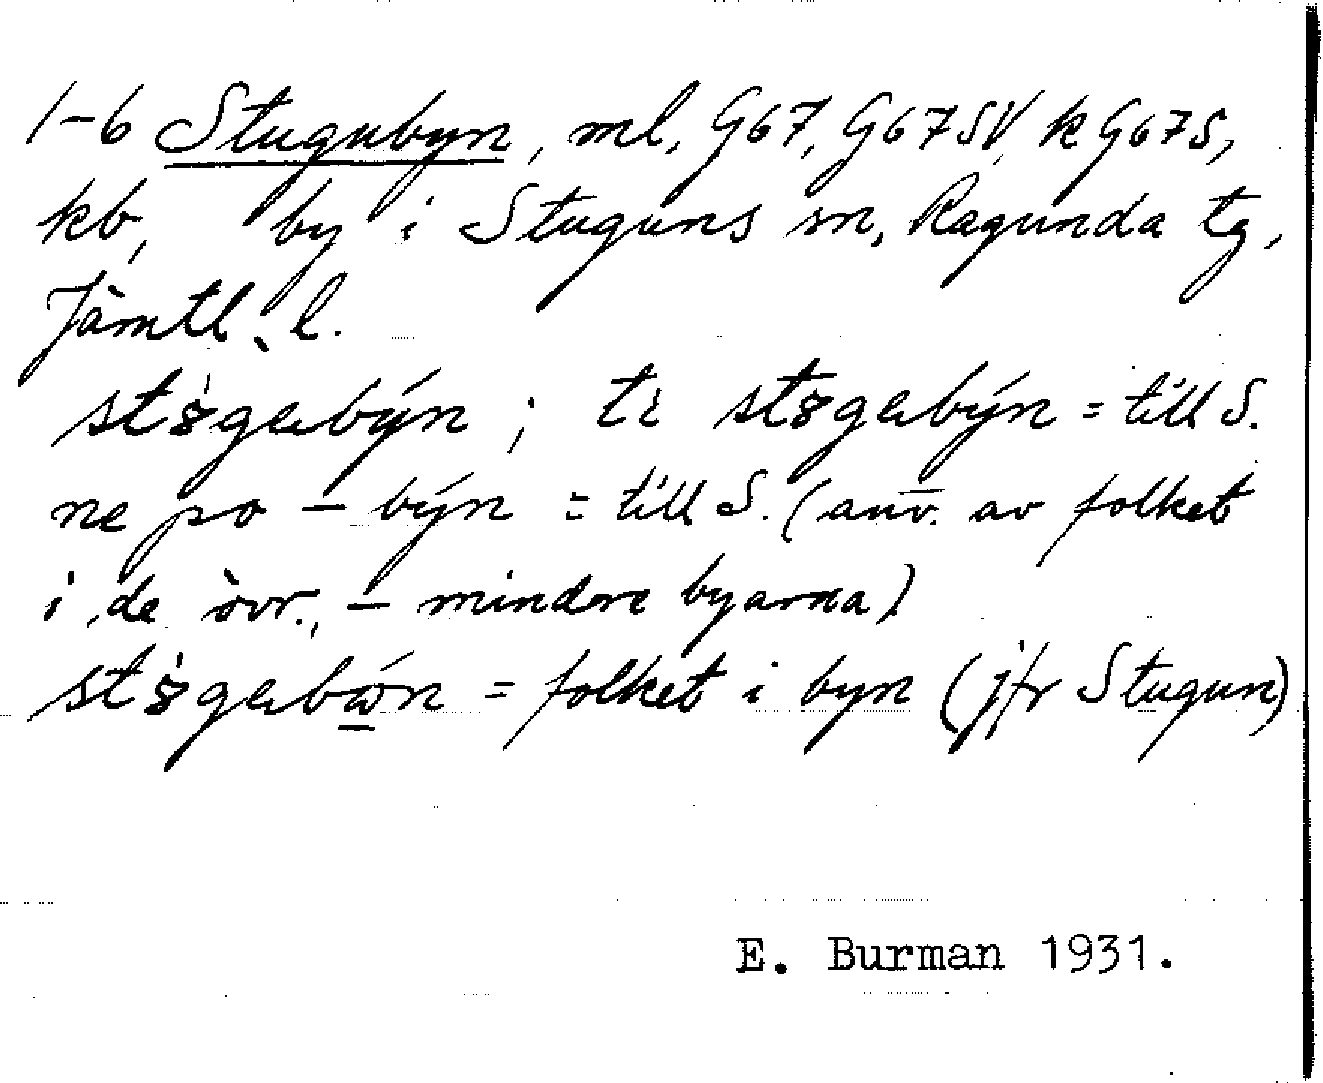 1-6 Stugubyn, ml, G67, G67SV, k G67S,
kb, by i Stuguns sn, Ragunda tg,
Jämtl. l.
stȣ́gabýn ; ti stȣgabýn = till S.
ne po – býn = till S. (anv. av folket
i de övr., – mindre byarna)
stȣ́gabώ̱n = folket i byn (jfr Stugun)
E. Burman 1931.